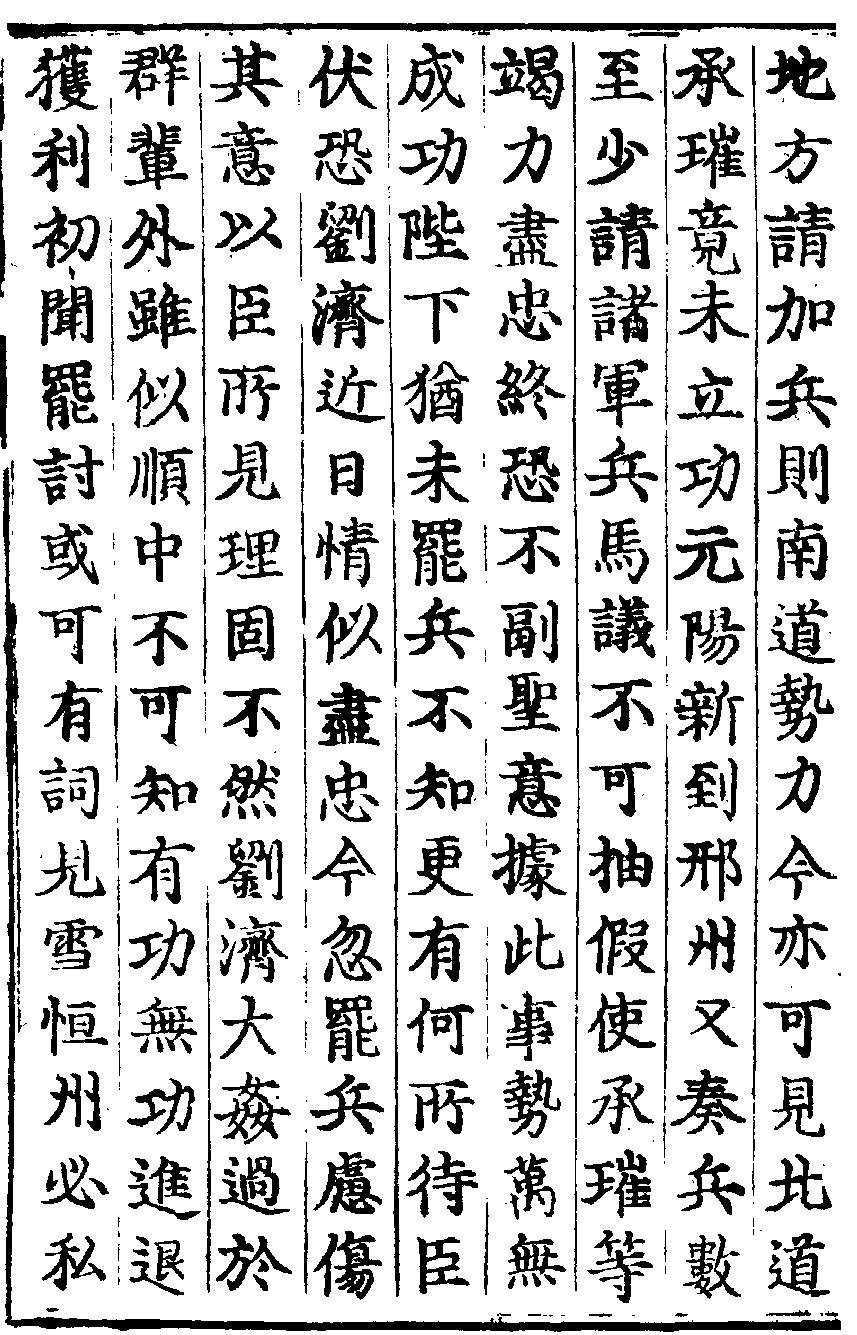 地方請加兵則南道勢力今亦可見北道
承璀竟未立功元陽新到邢州又奏兵數
至少請諸軍兵馬議不可抽假使承璀等
竭力盡忠終恐不副聖意據此事勢萬無
成功陛下猶未罷兵不知更有何所待臣
伏恐劉濟近日情似盡忠今忽罷兵慮傷
其意以臣所見理固不然劉濟大姦過於
群輩外雖似順中不可知有功無功進退
獲利初聞罷討或可有詞見雪恒州必私